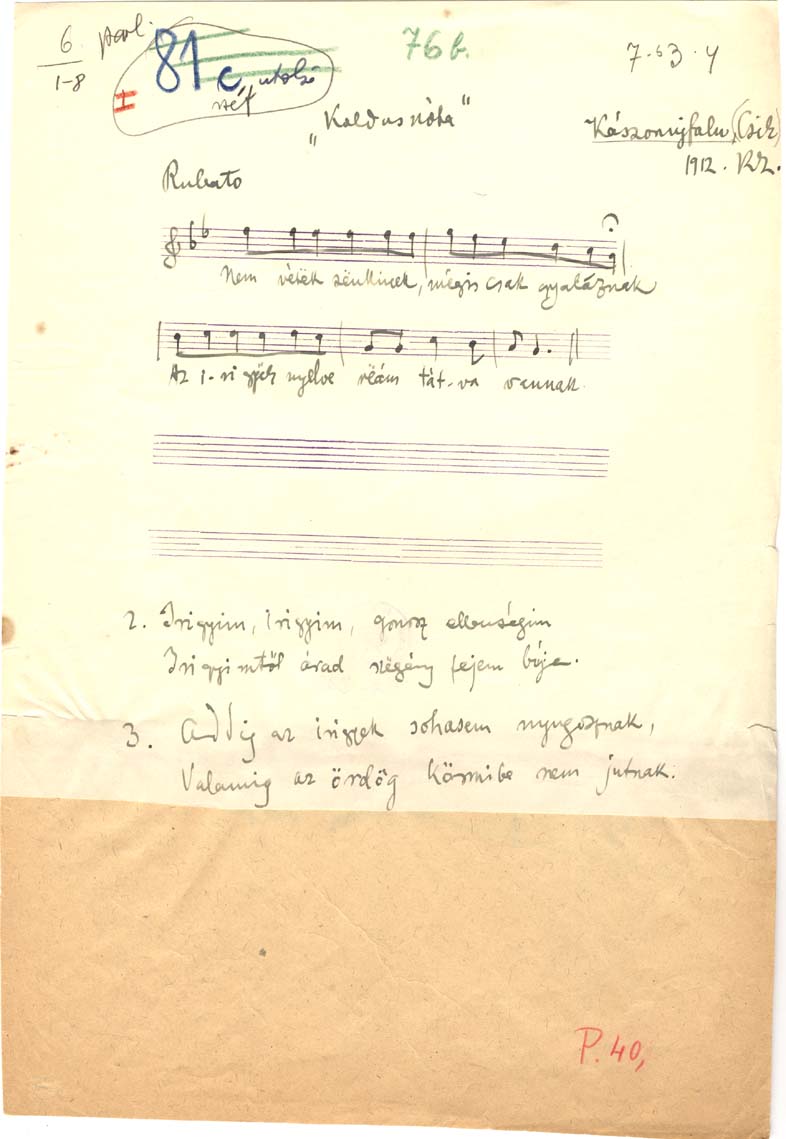 6
1-8
81 c, utolsó
I
76 b.
7-b3-4
„Koldusnóta"
Kászonujfalu, (Csik)
1912.
Rubato
Nem vétëk sënkinek, mégis csak gyaláznak
Az i-ri gyëk nyelve rëám tát-va vannak.
2. Irigyim, irigyim, gonosz ellenségim
Irigyimtől árad szëgény fejem búja.
3. Addig az irigyek sohasem nyugosznak,
Valamig az ördög körmibe nem jutnak.
P. 40,